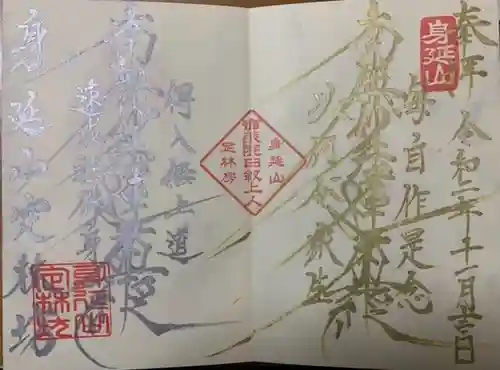 身延山
奉拝 令和二年十一月
毎自作是念
南無妙法蓮華経
以何令衆生
身延山
上人
定林坊
得入無上道
南無妙法蓮華経
速成就佛身
身延山定林坊
身延山
定林坊